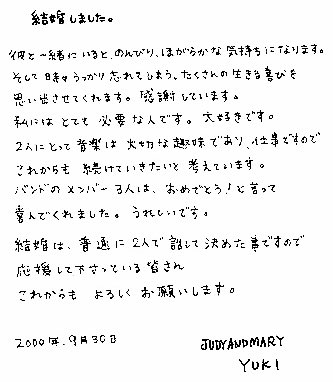 結婚しました。
彼と一緒にいると、のんびり、ほがらかな気持ちになります。
そして時々うっかり忘れてしまう、たくさんの生きる喜びを
思い出させてくれます。感謝しています。
私にはとても必要な人です。大好きです。
2人にとって音楽は大切な趣味であり、仕事ですので
これからも続けていきたいと考えています。
バンドのメンバー3人は、おめでとう！と言って
喜んでくれました。うれしいです。
結婚は、普通に2人で話して決めた事ですので
応援して下さっている皆さん
これからもよろしくお願いします。
2000年.9月30日
JUDYANDMARY
YUKI